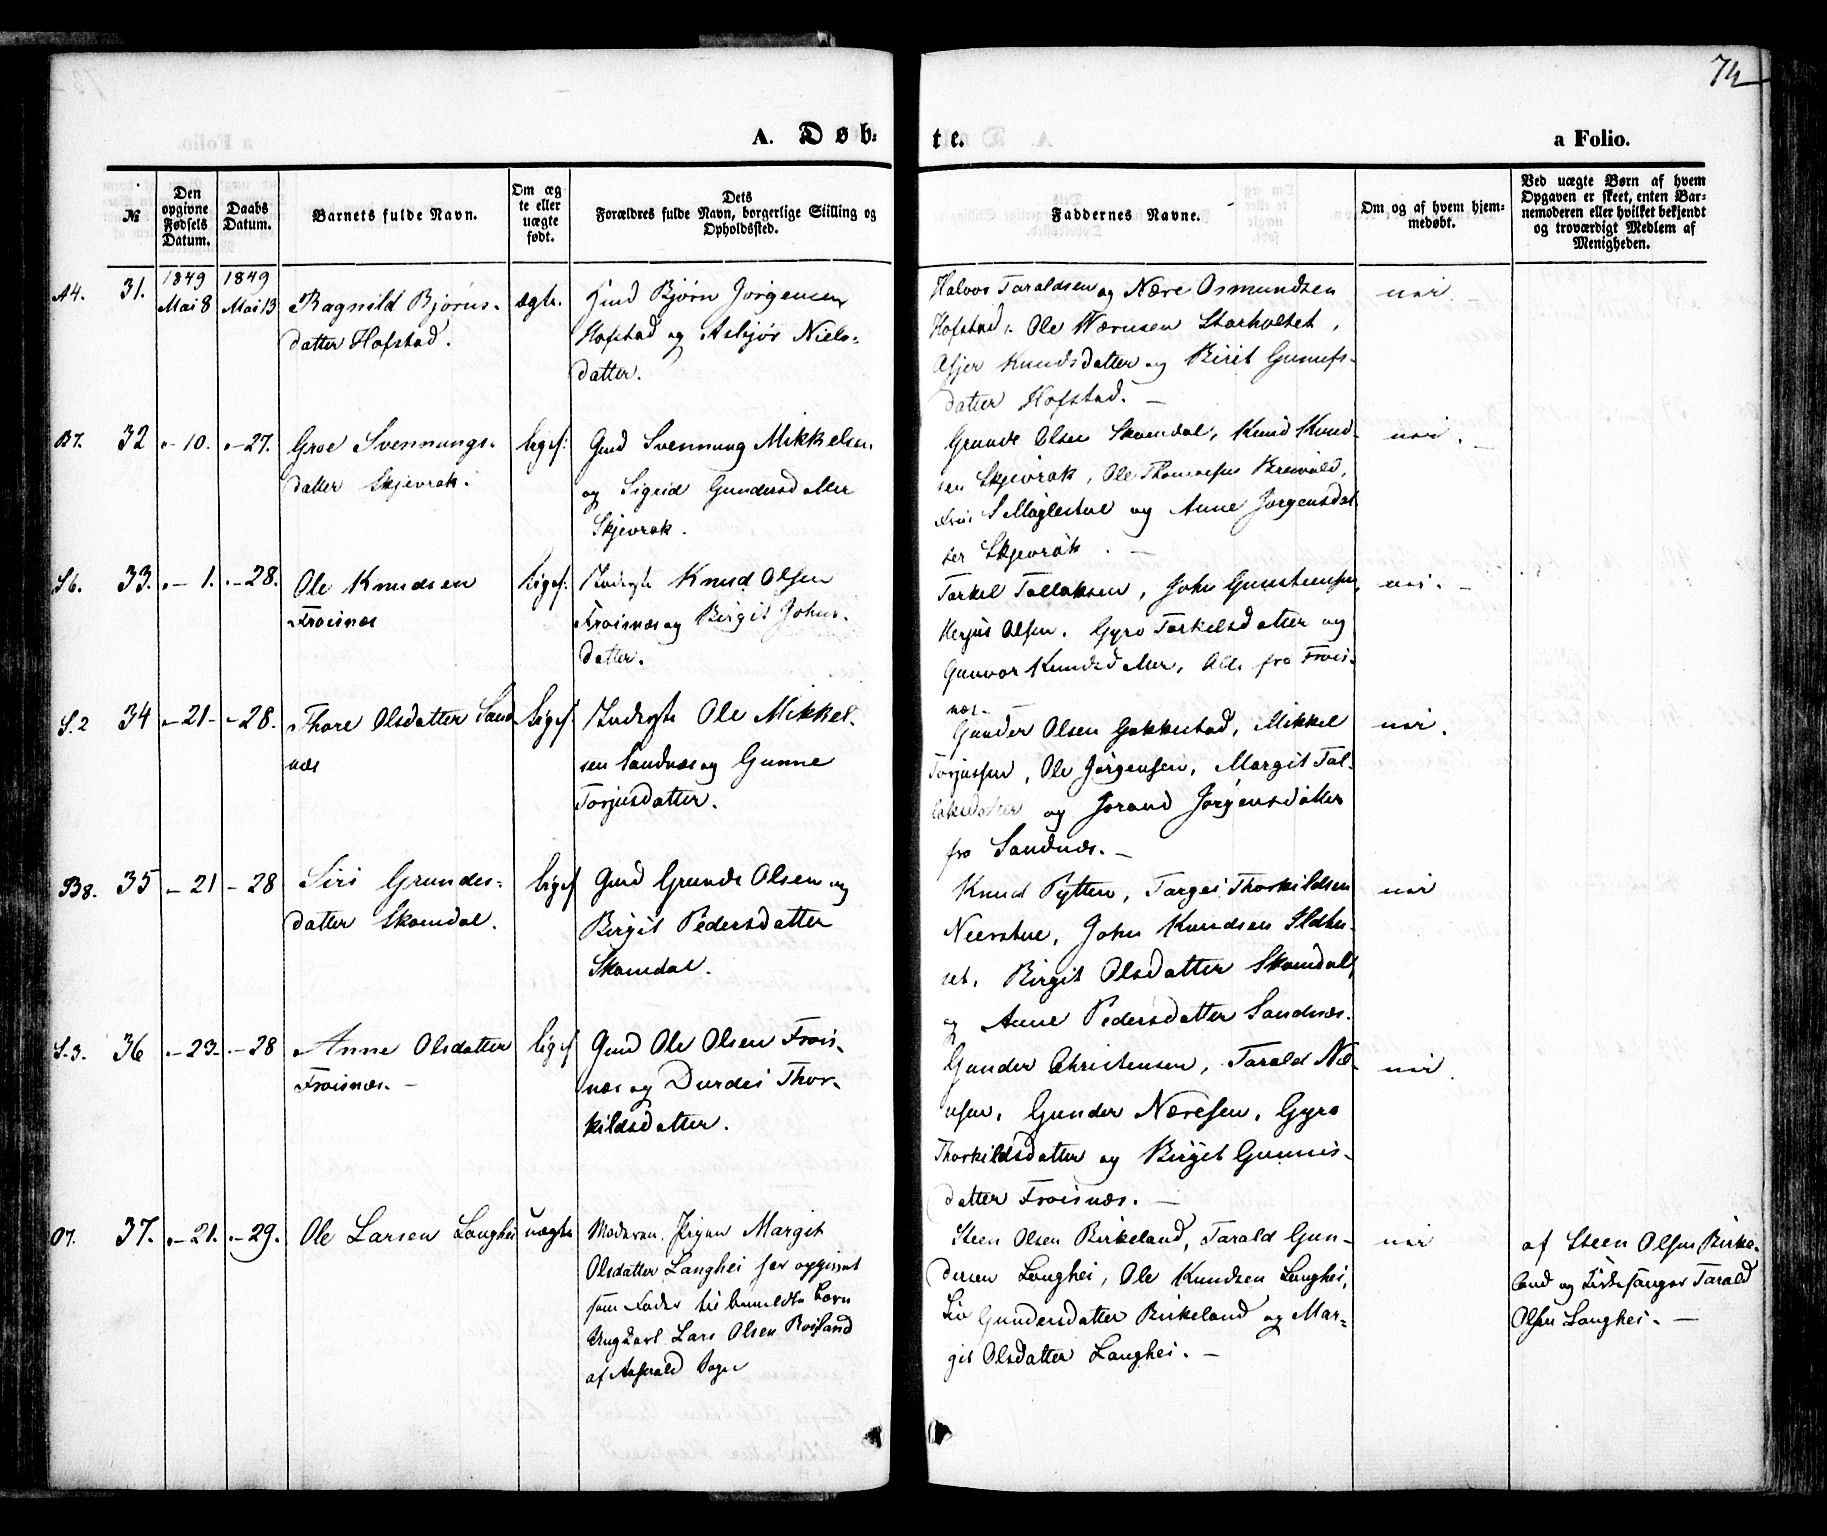 74
A. Døb-
te.
a Folio.
№
Den opgivne Fødsels Datum.
Daabs Datum.
Barnets fulde Navn.
Om ægte eller uægte født.
Dets
Forældres fulde Navn, borgerlige Stilling og
Opholdssted.
Faddernes Navne.
Om og af hvem hjem-
medøbt.
Ved uægte Børn af hvem
Opgaven er skeet, enten Bar-
nemoderen eller hvilket bekjendt
og troværdigt Medlem af
Menigheden.
A4. 31. 1849 Mai 8 1849 Mai 13
Ragnild Bjørns-
datter Hofstad.
ægte.
Gmd Bjørn Jørgensen
Hofstad og Asbjør Niels-
datter.
Halvor Taraldsen og Nære Osmundsen
Hofstad, Ole Størholtet,
Asjer Knudsdatter og Birit Gunufs-
datter Hofstad. —
nei.
B7. 32 - 10. - 27.
Groe Svennungs-
datter Skjevrak.
ligesf:
Gmd Svennung Mikkelsen
og Sigrid Gundersdatter
Skjevrak.
Grunde Olsen Skomdal, Knud Knud-
sen Skjevrak, Ole Breivold,
S Møglestue og Anne Jørgensdat-
ter Skjevrak. —
nei.
S6. 33. - 1. - 28.
Ole Knudsen
Froisnæs
ligesf:
Inderste Knud Olsen
Froisnæs og Birgit Johns-
datter.
Torkel Tallaksen, John Gunstensen,
Herjus Olsen, Gyro Torkelsdatter og
Gunvor Knudsdatter, Alle fra Frois-
næs. —
nei. —
S.2 34 - 21 - - 28.
Thore Olsdatter Sand
næs
ligesf
Inderste Ole Mikkel-
sen Sandnæs og Gunne
Torjusdatter.
Gunder Olsen Gakkestad, Mikkel
Torjussen, Ole Jørgensen, Margit Tal-
laksdatter og Jorand Jørgensdatter
fra Sandnæs. —
nei.
B8. 35 - 21 - 28
Siri Grundes-
datter Skomdal.
ligesf
Gmd Grunde Olsen og
Birgit Pedersdatter
Skomdal.
Knud Pytten, Targei Thorkildsen
Neerstue, John Knudsen Ildhu-
set, Birgit Olsdatter Skomdal,
og Anne Pedersdatter Sandnæs.
nei
S.3. 36 - 23. - 28
Anne Olsdatter
Froisnæs. —
ligesf
Gmd Ole Olsen Frois-
næs og Durdei Thor-
kildsdatter.
Gunder Christensen, Tarald Næ-
resen, Gunder Næresen, Gyro
Thorkildsdatter og Birgit Gunnis-
datter Froisnæs. —
nei.
O7. 37. - 21. - 29.
Ole Larsen Langhei
uægte
Moderen, Pigen Margit
Olsdatter Langhei har opgivet
som Fader til bemeldte Barn
Ungkarl Lars Olsen Roiland
af Aaserald Sogn
Steen Olsen Birkeland, Tarald Gun-
dersen Langhei, Ole Knudsen Langhei,
Liv Gundersdatter Birkeland og Mar-
git Olsdatter Langhei. —
nei
af Steen Olsen Birke-
land og Kirkesanger Tarald
Olsen Langhei. —